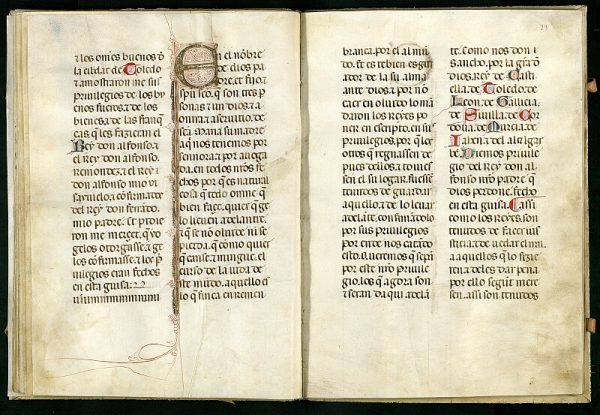 ⁊ los omes buenos ð
la cibdat de Toledo
⁊ amostraron me sus
priuilegios de los bu
enos fueros. ⁊ de los
bienes. ⁊ de las franq̃
zas que les fazieran el
Rey don alfonso. ⁊
el rey don alfonso.
remontez. ⁊ el rey
don alfonso mio vi
sauuelo. ⁊ cōfirmados
del Rey don ferrādo.
mio padre. Et pidie
ron me merçet. que yo
gelos otorgasse. ⁊ ge
los cōfirmasse. ⁊ los p̃ui
legios eran fechos
en esta guisa.
En el nōbre
de dios pa
dre. et fijo. ⁊
spū sc̃o. que son tres p̃
sonas ⁊ un dios. ⁊ a
onrra ⁊ a seruitio. de
sc̃a maria su madre
a qui nos tenemos por
sennora ⁊ por auoga
da. en todos nr̃os fe
chos por que es natural
cosa que todo omne. q̃
bien faze. quier que ge
lo lieuen adelante.
⁊ que se nō oluide ni se
pierda. que cómo quier
que canse ⁊ mingue. el
curso de la uida de
este mūdo. aquello es
lo que finca en remen
branca. por el al mū
do. Et este bien es gui
ador de la su alma
ante dios. ⁊ por nō
caer en oluido lo mā
daron los reyes poner
en escripto. en sus
priuilegios. por que los
otros que regnassen de
pues dellos. ⁊ touies
sen el su logar. fuessē
tenudos de guardar
aquello. ⁊ de lo leuar
adelāte. confirmādolo
por sus priuilegios
por ende nos catādo
esto. queremos que sepā
por este nr̃o priuile
gio. los que agora son
⁊ seran daqui adelā
te. Como nos don
sancho. por la gr̃a ð
dios. Rey de Cas
tiella. de Toledo. de
Leon. de Gallicia.
de Seuilla. de Cor
doua. de Murcia. de
Iahen. ⁊ del algarue
Viemos priuile
gio del rey don al
fonso nr̃o padre que
dios perdone. fecho
en esta guisa. Cassi
como los reyes. son
tenudos de fazer ius
ticia. ⁊ de uedar el mal.
a aquellos que lo fezie
ren. ⁊ de les dar pena
por ello segūt mere
scen. assi son tenudos